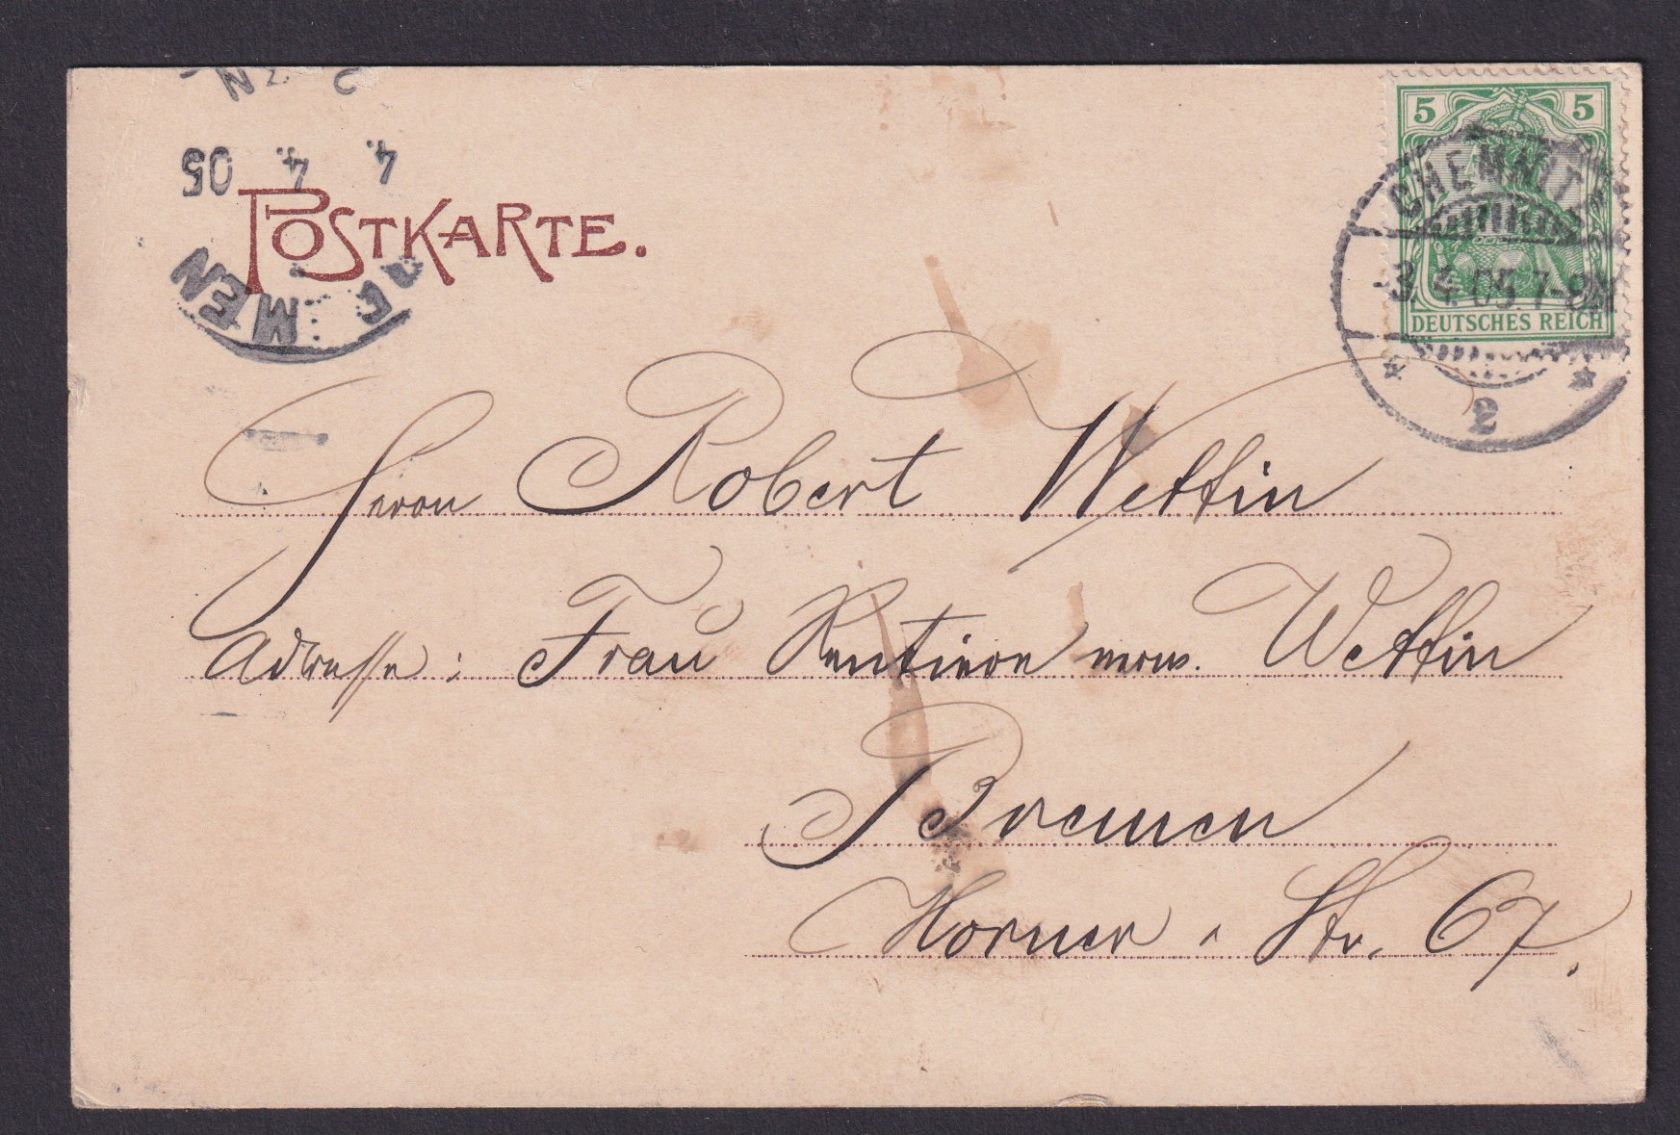 4. 4. 05
MEN
POSTKARTE.
5 5
CHEMNITZ
-3.4.05.7-8N
DEUTSCHES REICH
* 2 *
Herrn Robert Wettin
Adresse: Frau Rentiere verw. Wettin
Bremen
Horner-Str. 67.